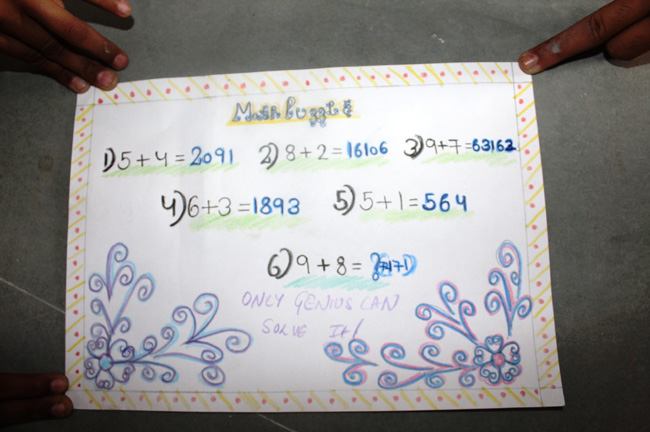 Math Puzzle
1) 5+4=2091 2) 8+2=16106 3) 9+7=63162
4) 6+3=1893 5) 5+1=564
6) 9+8=
ONLY GENIUS CAN
SOLVE It!